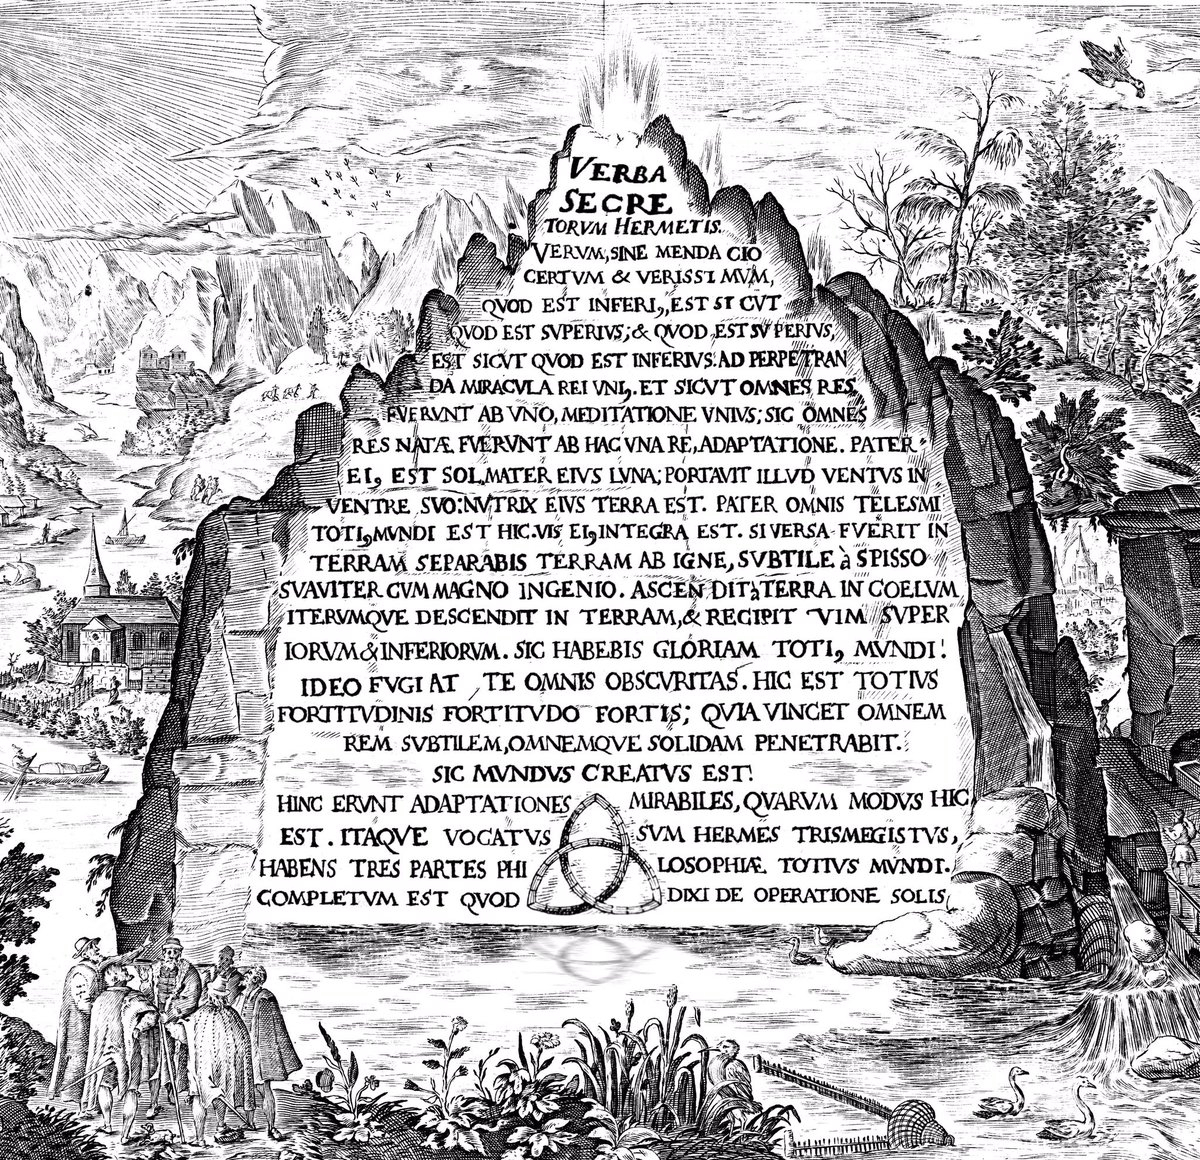 VERBA
SECRE
TORVM HERMETIS.
VERVM, SINE MENDA CIO
CERTVM & VERISSIMVM,
QVOD EST INFERIꝰ, EST SICVT
QVOD EST SVPERIVS; & QVOD EST SVPERIVS,
EST SICVT QVOD EST INFERIVS: AD PERPETRAN
DA MIRACVLA REI VNIꝰ. ET SICVT OMNES RES
FVERVNT AB VNO, MEDITATIONE VNIVS; SIC OMNES
RES NATÆ FVERVNT AB HAC VNA RE, ADAPTATIONE. PATER
EIꝰ EST SOL, MATER EIVS LVNA; PORTAVIT ILLVD VENTVS IN
VENTRE SVO: NVTRIX EIVS TERRA EST. PATER OMNIS TELESMI
TOTIꝰ MVNDI EST HIC. VIS EIꝰ INTEGRA EST. SI VERSA FVERIT IN
TERRAM SEPARABIS TERRAM AB IGNE, SVBTILE à SPISSO
SVAVITER CVM MAGNO INGENIO. ASCENDIT à TERRA IN COELVM
ITERVMQVE DESCENDIT IN TERRAM, & RECIPIT VIM SVPER
IORVM & INFERIORVM. SIC HABEBIS GLORIAM TOTIꝰ MVNDI.
IDEO FVGIAT TE OMNIS OBSCVRITAS. HIC EST TOTIVS
FORTITVDINIS FORTITVDO FORTIS; QVIA VINCET OMNEM
REM SVBTILEM, OMNEMQVE SOLIDAM PENETRABIT.
SIC MVNDVS CREATVS EST.
HINC ERVNT ADAPTATIONES MIRABILES, QVARVM MODVS HIC
EST. ITAQVE VOCATVS SVM HERMES TRISMEGISTVS,
HABENS TRES PARTES PHI LOSOPHIÆ TOTIVS MVNDI.
COMPLETVM EST QVOD DIXI DE OPERATIONE SOLIS